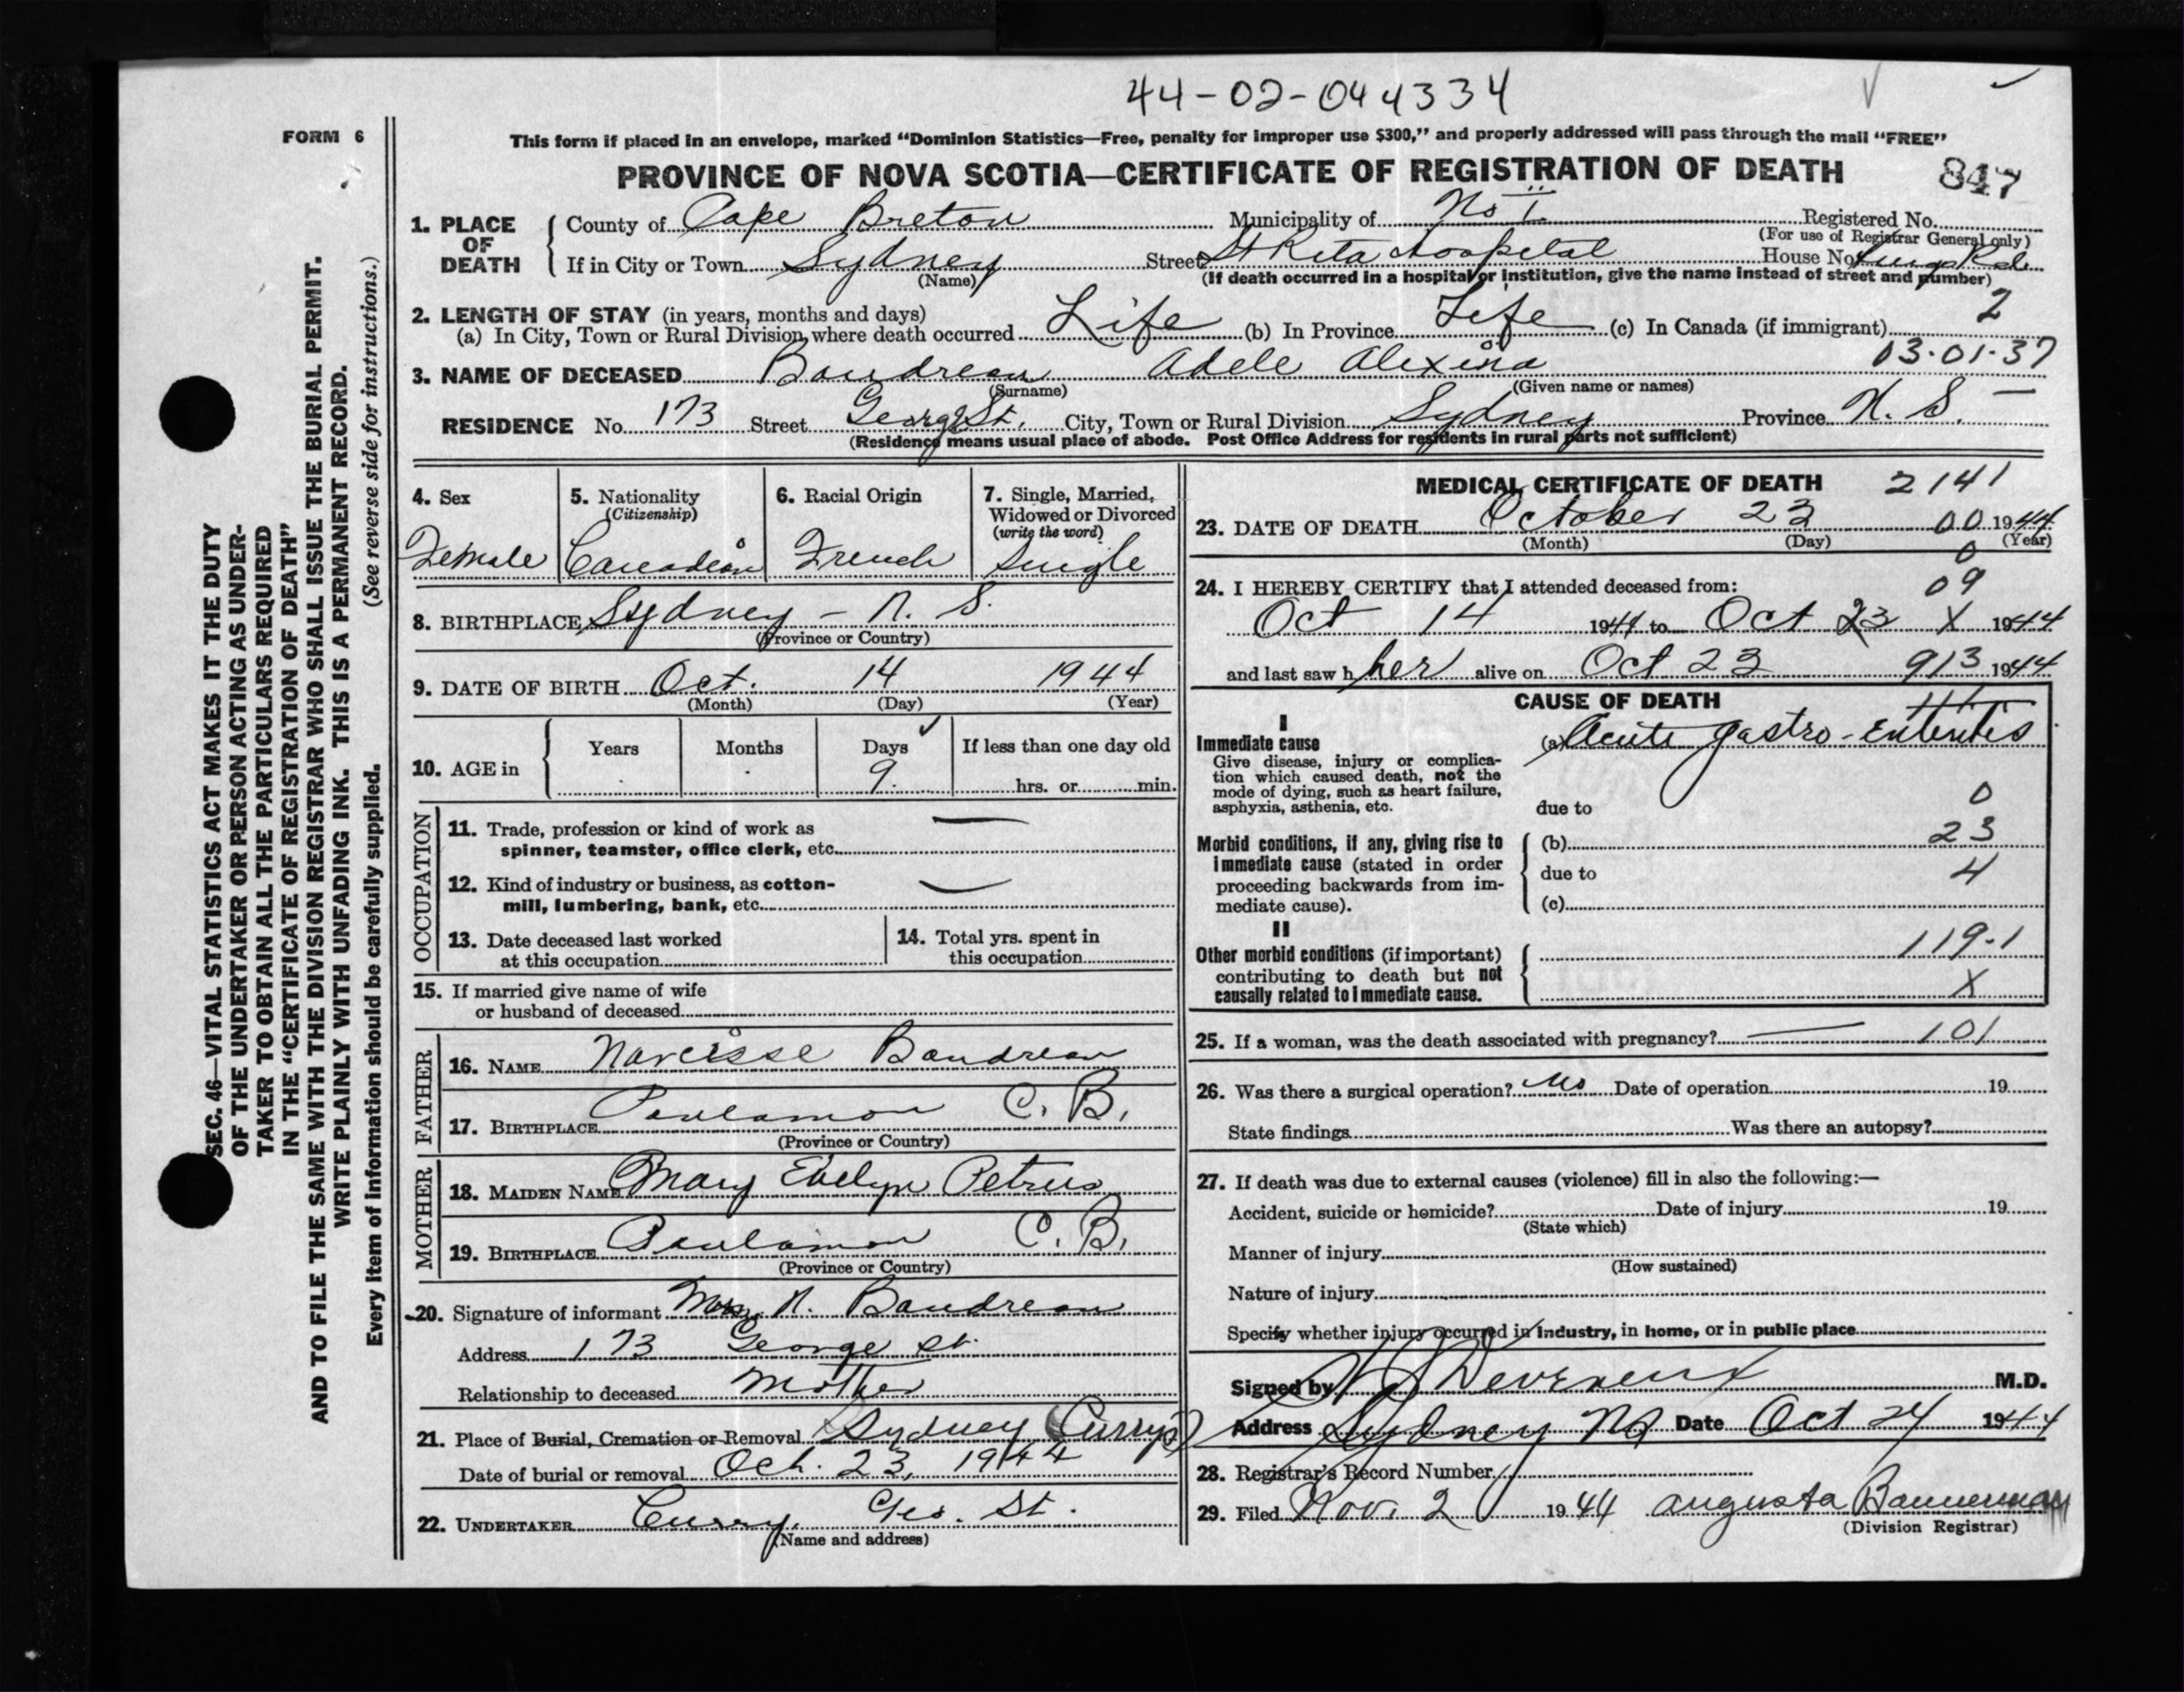 44-02-044334
FORM 6
This form if placed in an envelope, marked "Dominion Statistics—Free, penalty for improper use $300," and properly addressed will pass through the mail "FREE"
PROVINCE OF NOVA SCOTIA—CERTIFICATE OF REGISTRATION OF DEATH 847
1. PLACE OF DEATH
County of Cape Breton Municipality of No 1 Registered No.
(For use of Registrar General only)
If in City or Town Sydney Street St Rita Hospital House No. Kings Rd.
(Name) (If death occurred in a hospital or institution, give the name instead of street and number)
2. LENGTH OF STAY (in years, months and days) 2
(a) In City, Town or Rural Division where death occurred Life (b) In Province Life (c) In Canada (if immigrant)
03-01-37
3. NAME OF DECEASED Boudreau Adele Alexina
(Surname) (Given name or names)
RESIDENCE No. 173 Street George St. City, Town or Rural Division Sydney Province N. S. —
(Residence means usual place of abode. Post Office Address for residents in rural parts not sufficient)
4. Sex
Female
5. Nationality
(Citizenship)
Canadian
6. Racial Origin
French
7. Single, Married,
Widowed or Divorced
(write the word)
Single
8. BIRTHPLACE Sydney - N. S.
(Province or Country)
9. DATE OF BIRTH Oct. 14 1944
(Month) (Day) (Year)
10. AGE in
Years Months Days If less than one day old
9. hrs. or min.
OCCUPATION
11. Trade, profession or kind of work as —
spinner, teamster, office clerk, etc.
12. Kind of industry or business, as cotton- —
mill, lumbering, bank, etc.
13. Date deceased last worked
at this occupation
14. Total yrs. spent in
this occupation
15. If married give name of wife
or husband of deceased
FATHER
16. NAME Narcisse Boudreau
17. BIRTHPLACE C. B.
(Province or Country)
MOTHER
18. MAIDEN NAME Mary Evelyn Petrus
19. BIRTHPLACE C. B.
(Province or Country)
20. Signature of informant Mrs. N. Boudreau
Address 173 George St.
Relationship to deceased Mother
21. Place of Burial, Cremation or Removal Sydney (Currys)
Date of burial or removal Oct. 23, 1944
22. UNDERTAKER Curry, Geo. St.
(Name and address)
MEDICAL CERTIFICATE OF DEATH 2141
23. DATE OF DEATH October 23 00 1944
(Month) (Day) (Year)
0
24. I HEREBY CERTIFY that I attended deceased from: 09
Oct 14 1944 to Oct 23 X 1944
and last saw her alive on Oct 23 913 1944
CAUSE OF DEATH
I
Immediate cause
Give disease, injury or complica-
tion which caused death, not the
mode of dying, such as heart failure,
asphyxia, asthenia, etc.
(a) Acute gastro-enteritis
due to 0
Morbid conditions, if any, giving rise to
immediate cause (stated in order
proceeding backwards from im-
mediate cause).
(b) 23
due to 4
(c)
II
Other morbid conditions (if important)
contributing to death but not
causally related to immediate cause.
119-1
X
25. If a woman, was the death associated with pregnancy? — 101
26. Was there a surgical operation? No Date of operation 19
State findings Was there an autopsy?
27. If death was due to external causes (violence) fill in also the following:—
Accident, suicide or homicide? Date of injury 19
(State which)
Manner of injury
(How sustained)
Nature of injury
Specify whether injury occurred in industry, in home, or in public place
Signed by Devereux M.D.
Address Sydney NS Date Oct 24 1944
28. Registrar's Record Number
29. Filed Nov. 2 1944 Augusta Bannerman
(Division Registrar)
SEC. 46—VITAL STATISTICS ACT MAKES IT THE DUTY
OF THE UNDERTAKER OR PERSON ACTING AS UNDER-
TAKER TO OBTAIN ALL THE PARTICULARS REQUIRED
IN THE "CERTIFICATE OF REGISTRATION OF DEATH"
AND TO FILE THE SAME WITH THE DIVISION REGISTRAR WHO SHALL ISSUE THE BURIAL PERMIT.
WRITE PLAINLY WITH UNFADING INK. THIS IS A PERMANENT RECORD.
Every item of information should be carefully supplied. (See reverse side for instructions.)